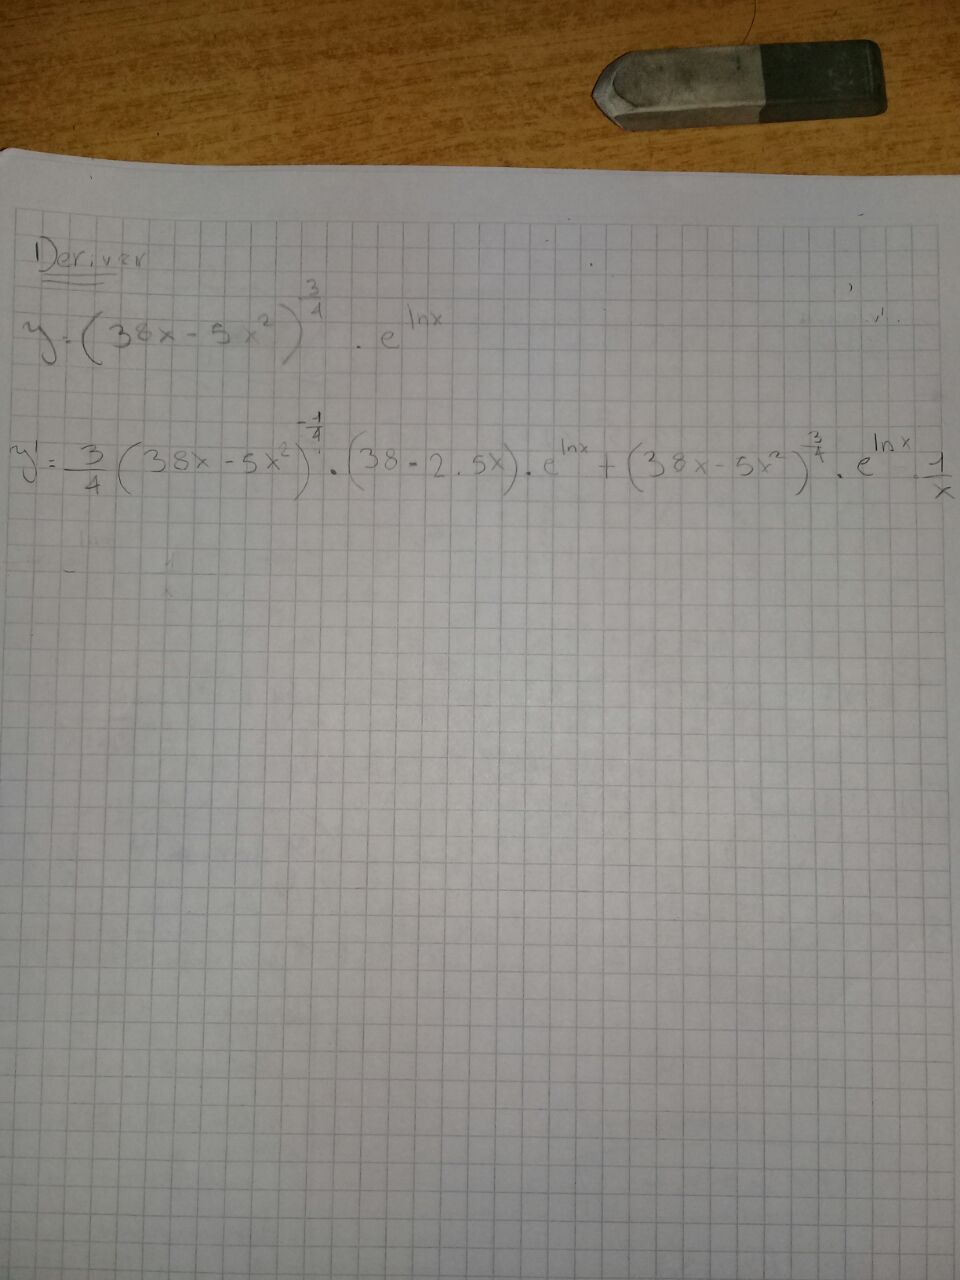 Derivar
y = (38x - 5x²)^{3/4} . e^{ln x}
y' = 3/4 (38x - 5x²)^{-1/4} . (38 - 2 . 5x) . e^{ln x} + (38x - 5x²)^{3/4} . e^{ln x} . 1/x